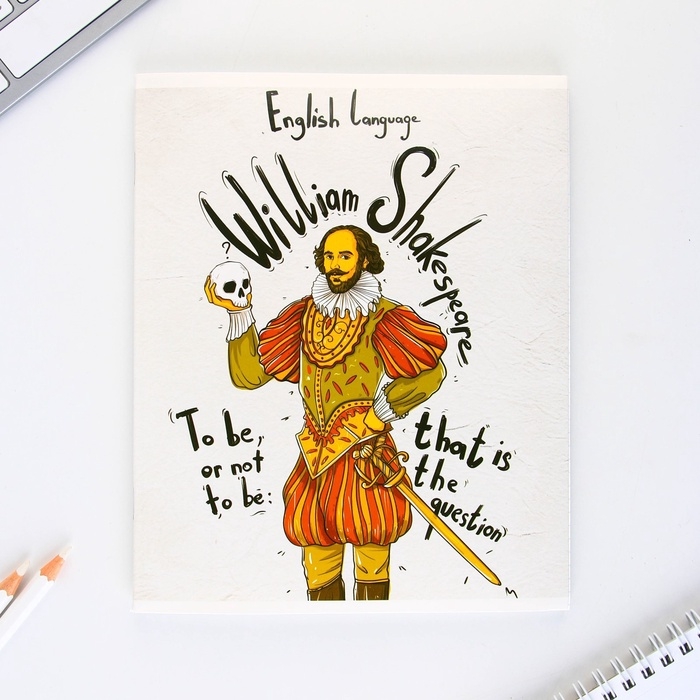 English Language
William Shakespeare
?
To be,
or not
to be:
that is
the
question